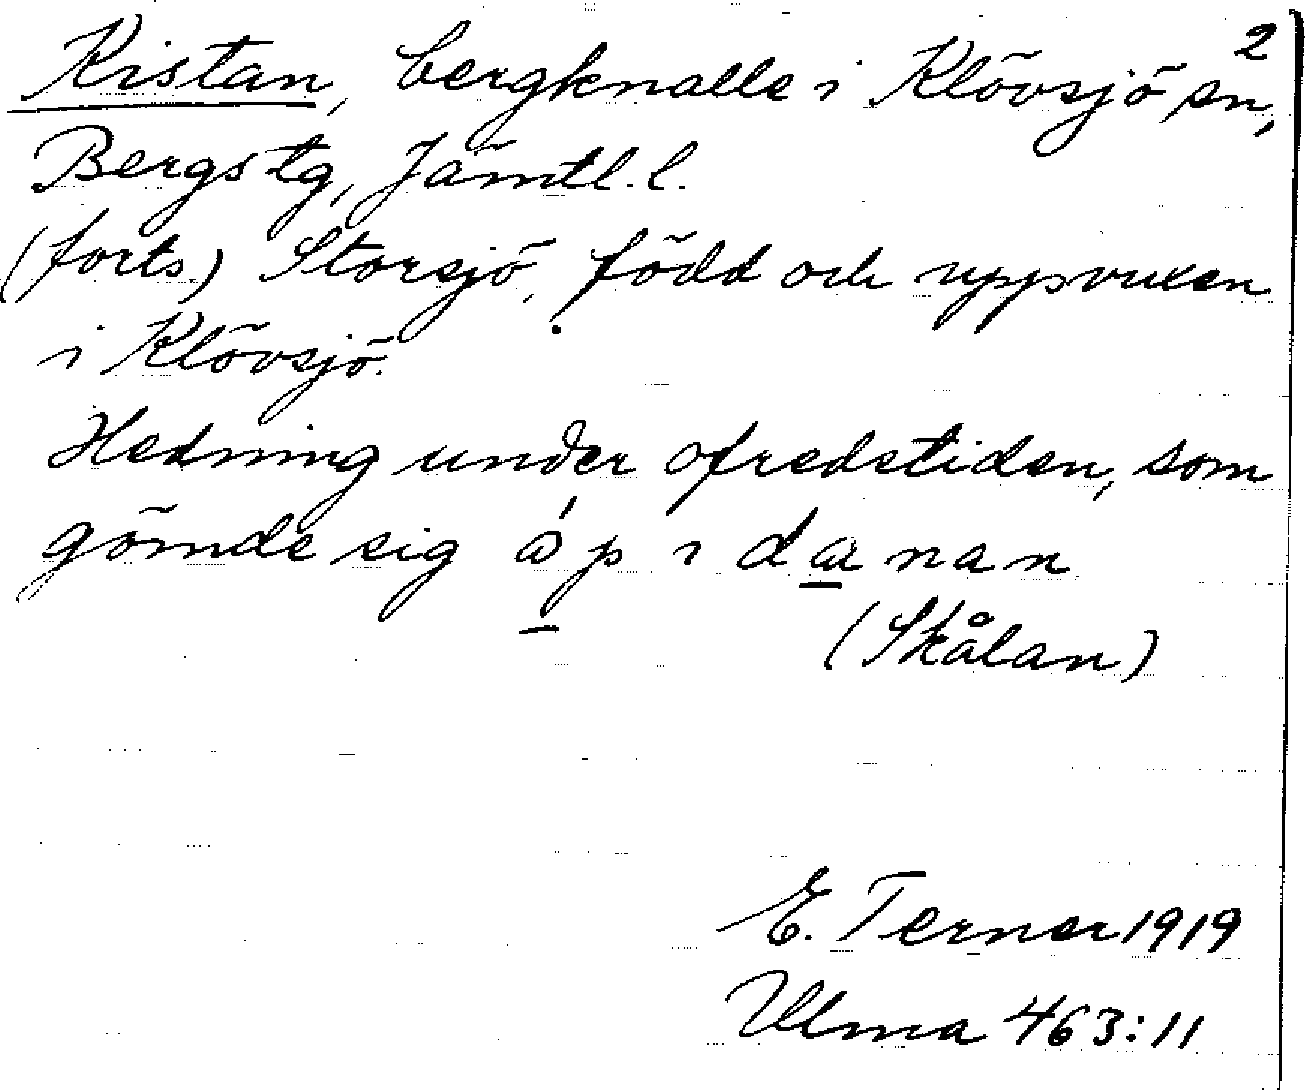 2
Kistan, bergknalle i Klövsjö sn,
Bergs tg, Jämtl. l.
(forts.) Storsjö, född och uppvuxen
i Klövsjö.
Hedning under ofredstiden, som
gömde sig
(Skålan)
E. Terner 1919
Ulma 463:11